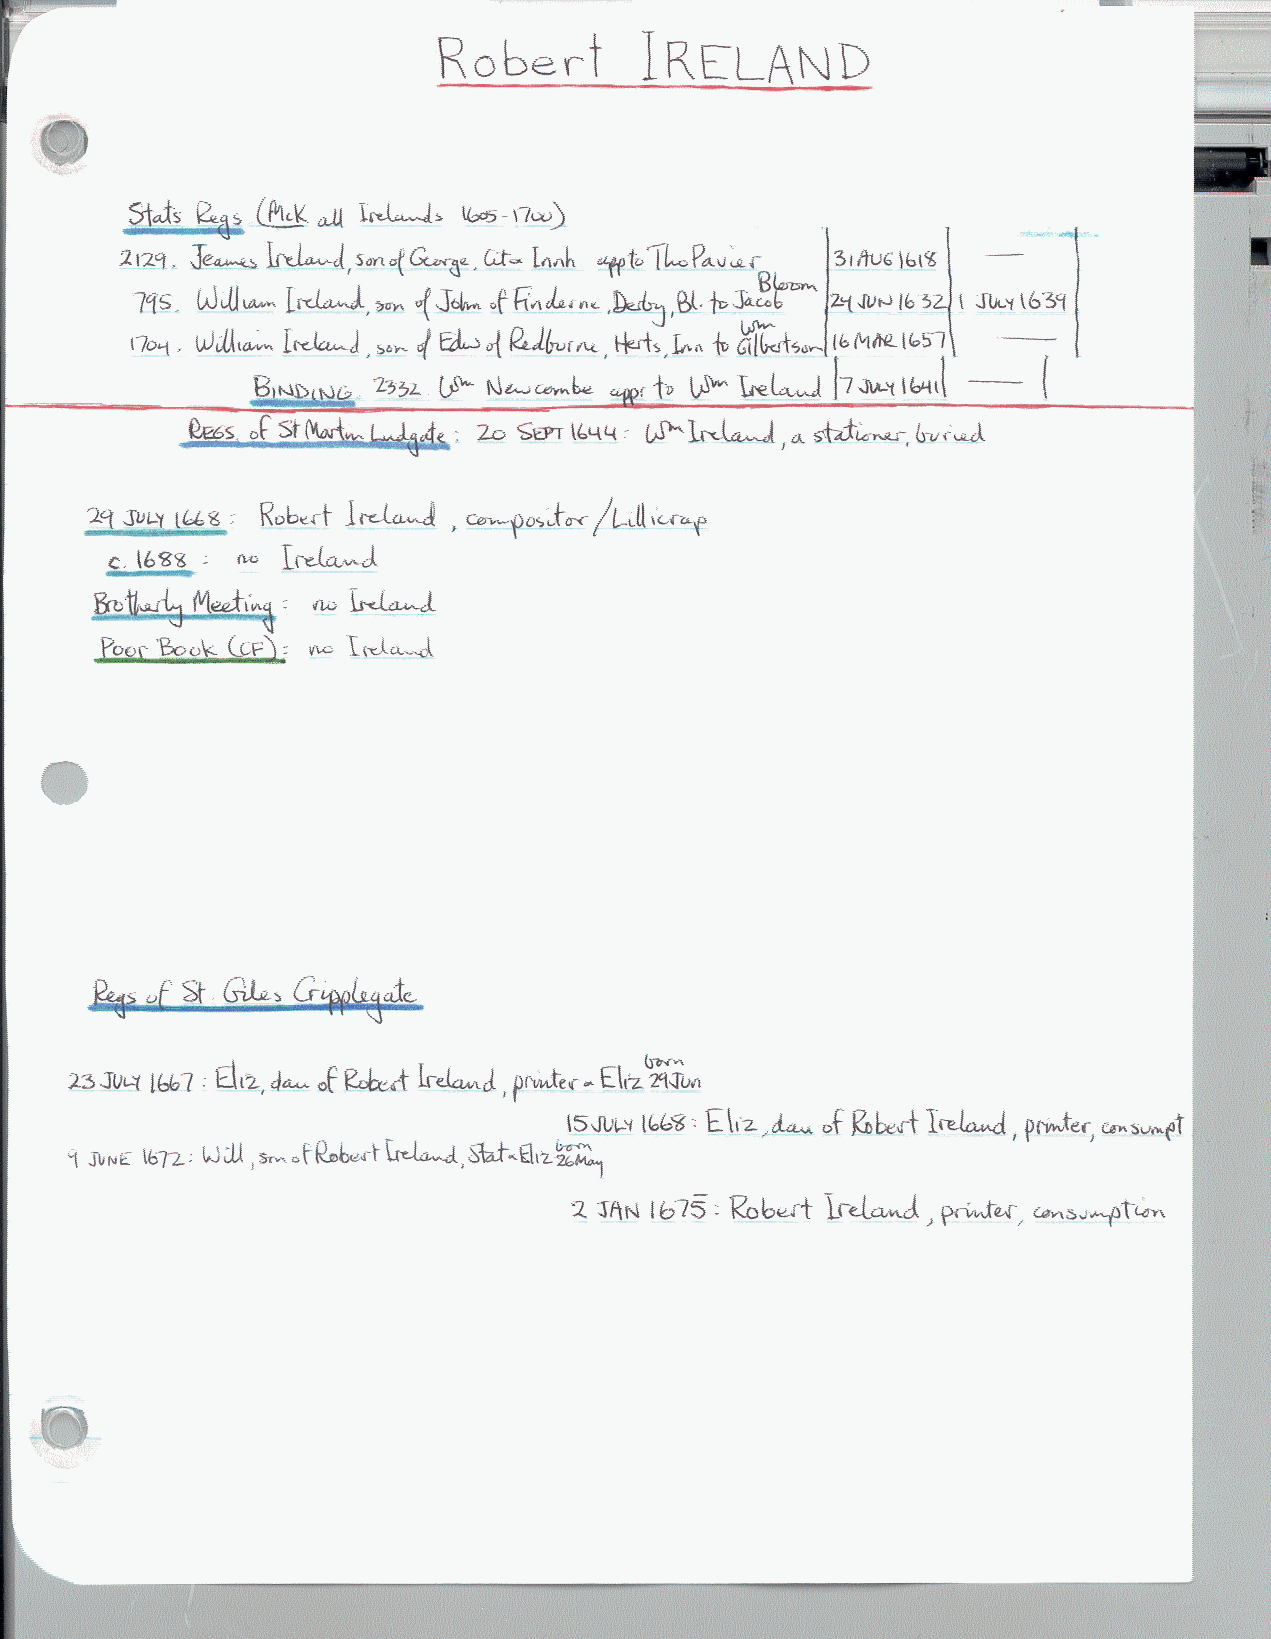 Robert IRELAND
Stat's Regs (McK all Irelands 1605-1700)
2129. Jeames Ireland, son of George, Cit & Innh app to Tho Pavier 31 AUG 1618 —
795. William Ireland, son of John of Finderne, Derby, Bl. to Jacob Bloom 24 JUN 1632 1 JULY 1639
1704. William Ireland, son of Edw of Redburne, Herts, Inn to Wm Gilbertson 16 MAR 1657 —
BINDING 2332 Wm Newcombe appr to Wm Ireland 7 JULY 1641 —
REGS. of St Martin Ludgate: 20 SEPT 1644: Wm Ireland, a stationer, buried
29 JULY 1668: Robert Ireland, compositor/Lillicrap
c. 1688: no Ireland
Brotherly Meeting: no Ireland
Poor Book (CF): no Ireland
Regs of St. Giles Cripplegate
23 JULY 1667: Eliz, dau of Robert Ireland, printer & Eliz born 29 Jun
15 JULY 1668: Eliz, dau of Robert Ireland, printer, consumpt
9 JUNE 1672: Will, son of Robert Ireland, Stat & Eliz born 26 May
2 JAN 1675: Robert Ireland, printer, consumption